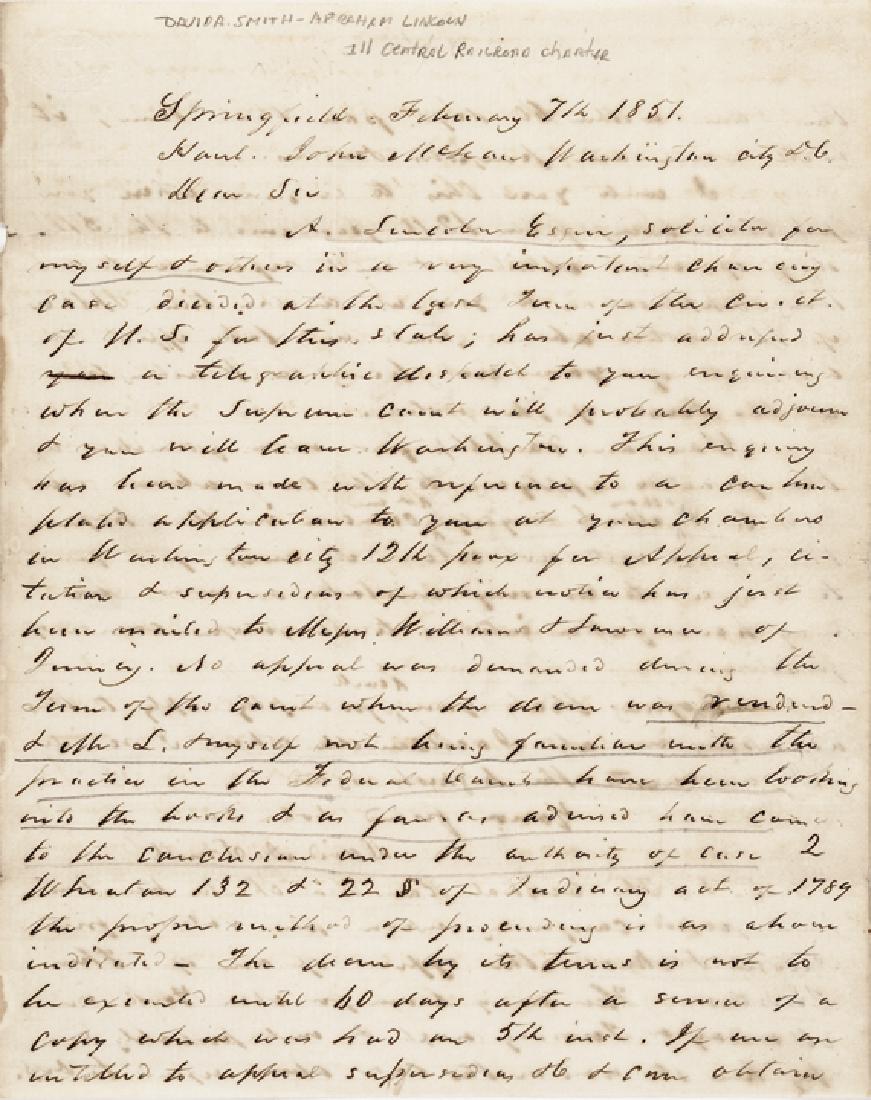 DAVID A. SMITH - ABRAHAM LINCOLN
Ill CENTRAL RAILROAD CHARTER
Springfield. February 7th 1851.
Honl. John McLean Washington city D.C.
Dear Sir
A. Lincoln Esqir, solicitor for
myself & others in a very important chancery
case decided at the last Term of the circ. ct.
of U. S. for this state; has just addressed
a telegraphic dispatch to you enquiring
when the Supreme court will probably adjourn
& you will leave Washington. This enquiry
has been made with reference to a contem
plated application to you at your chambers
in Washington city 12th prox for Appeal, ci-
tation & supersedeas of which notice has just
been mailed to Messrs Williams & Lawrence of
Quincy. No appeal was demanded during the
Term of the court when the decree was rendered -
& Mr L. & myself not being familiar with the
practice in the Federal Courts have been looking
into the books & as far as advised have come
to the conclusion under the authority of case 2
Wheaton 132 & 22 § of Judiciary act of 1789
the proper method of proceeding is as above
indicated - The decree by its terms is not to
be executed until 60 days after a service of a
copy which was had on 5th inst. If we are
entitled to appeal supersedeas &c & can obtain